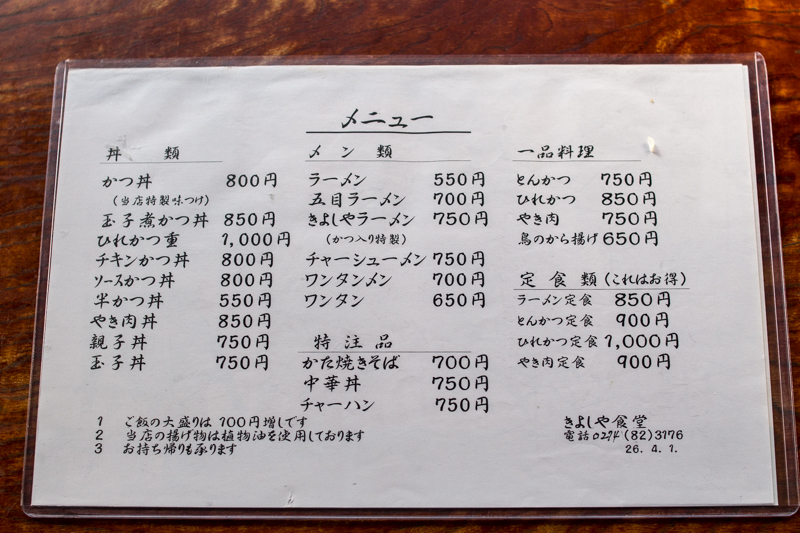 メニュー
丼 類
かつ丼 800円
(当店特製味つけ)
玉子煮かつ丼 850円
ひれかつ重 1,000円
チキンかつ丼 800円
ソースかつ丼 800円
半かつ丼 550円
やき肉丼 850円
親子丼 750円
玉子丼 750円
メン類
ラーメン 550円
五目ラーメン 700円
きよしやラーメン 750円
(かつ入り特製)
チャーシューメン 750円
ワンタンメン 700円
ワンタン 650円
特注品
かた焼きそば 700円
中華丼 750円
チャーハン 750円
一品料理
とんかつ 750円
ひれかつ 850円
やき肉 750円
鳥のから揚げ 650円
定食類(これはお得)
ラーメン定食 850円
とんかつ定食 900円
ひれかつ定食 1,000円
やき肉定食 900円
1 ご飯の大盛りは100円増しです
2 当店の揚げ物は植物油を使用しております
3 お持ち帰りも承ります
きよしや食堂
電話0274(82)3176
26.4.1.